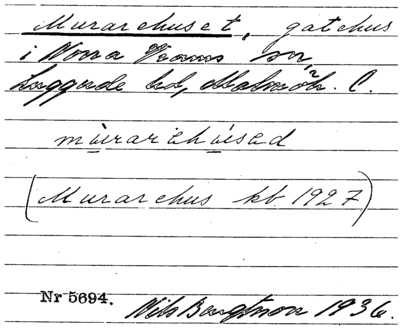 Murarehuset, gatehus
i Norra Vrams sn,
Luggude hd, Malmöh. C.
mùrarehúsed
(Murarehus kb. 1927)
Nr 5694. Nils Bengtsson 1936.